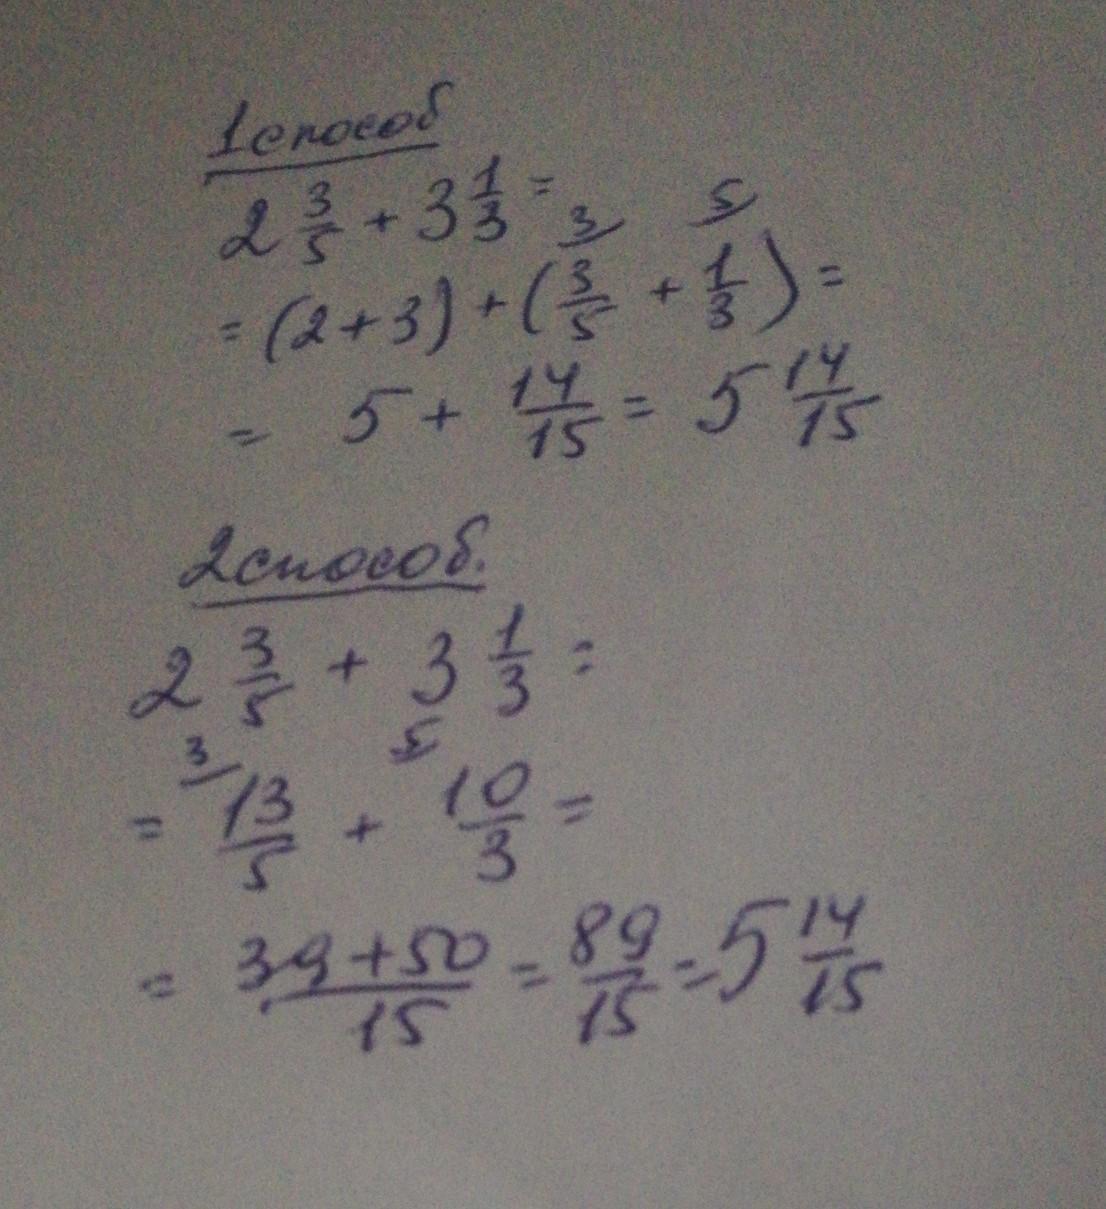 1 способ
2 3/5 + 3 1/3 =
3 5
= (2 + 3) + (3/5 + 1/3) =
= 5 + 14/15 = 5 14/15
2 способ.
2 3/5 + 3 1/3 =
3 5
= 13/5 + 10/3 =
= 39 + 50/15 = 89/15 = 5 14/15